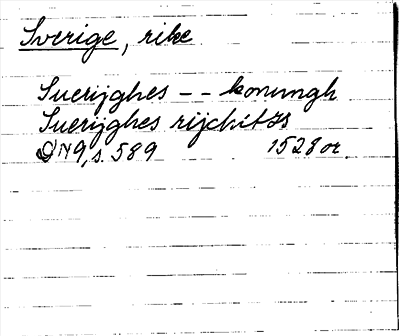 Sverige, rike
Suerijghes -- konungh
Suerijghes rijchitzs
DN9, s. 589 1528 or.